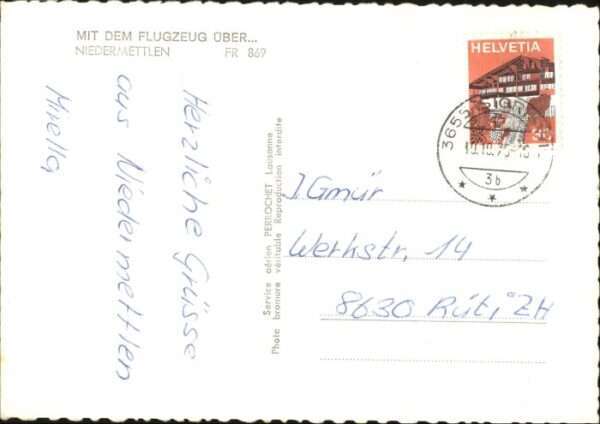 MIT DEM FLUGZEUG ÜBER...
NIEDERMETTLEN FR 869
Herzliche Grüsse
aus Niedermettlen
Mirella
Service aérien PERROCHET Lausanne
Photo bromure véritable Reproduction interdite
HELVETIA
3b
J. Gmür
Werkstr, 14
8630 Rüti ZH